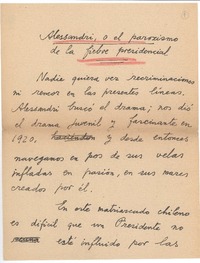 Alessandri, o el paroxismo
de la fiebre presidencial
Nadie quiere ver recriminaciones
ni rencor en las presentes líneas.
Alessandri buscó el drama; nos dió
el drama juvenil y fascinante en
1920, y desde entonces
navegamos en pos de sus velas
infladas en pasión, en sus mares
creados por él.
En este matriarcado chileno
es difícil que un Presidente no
esté influido por las